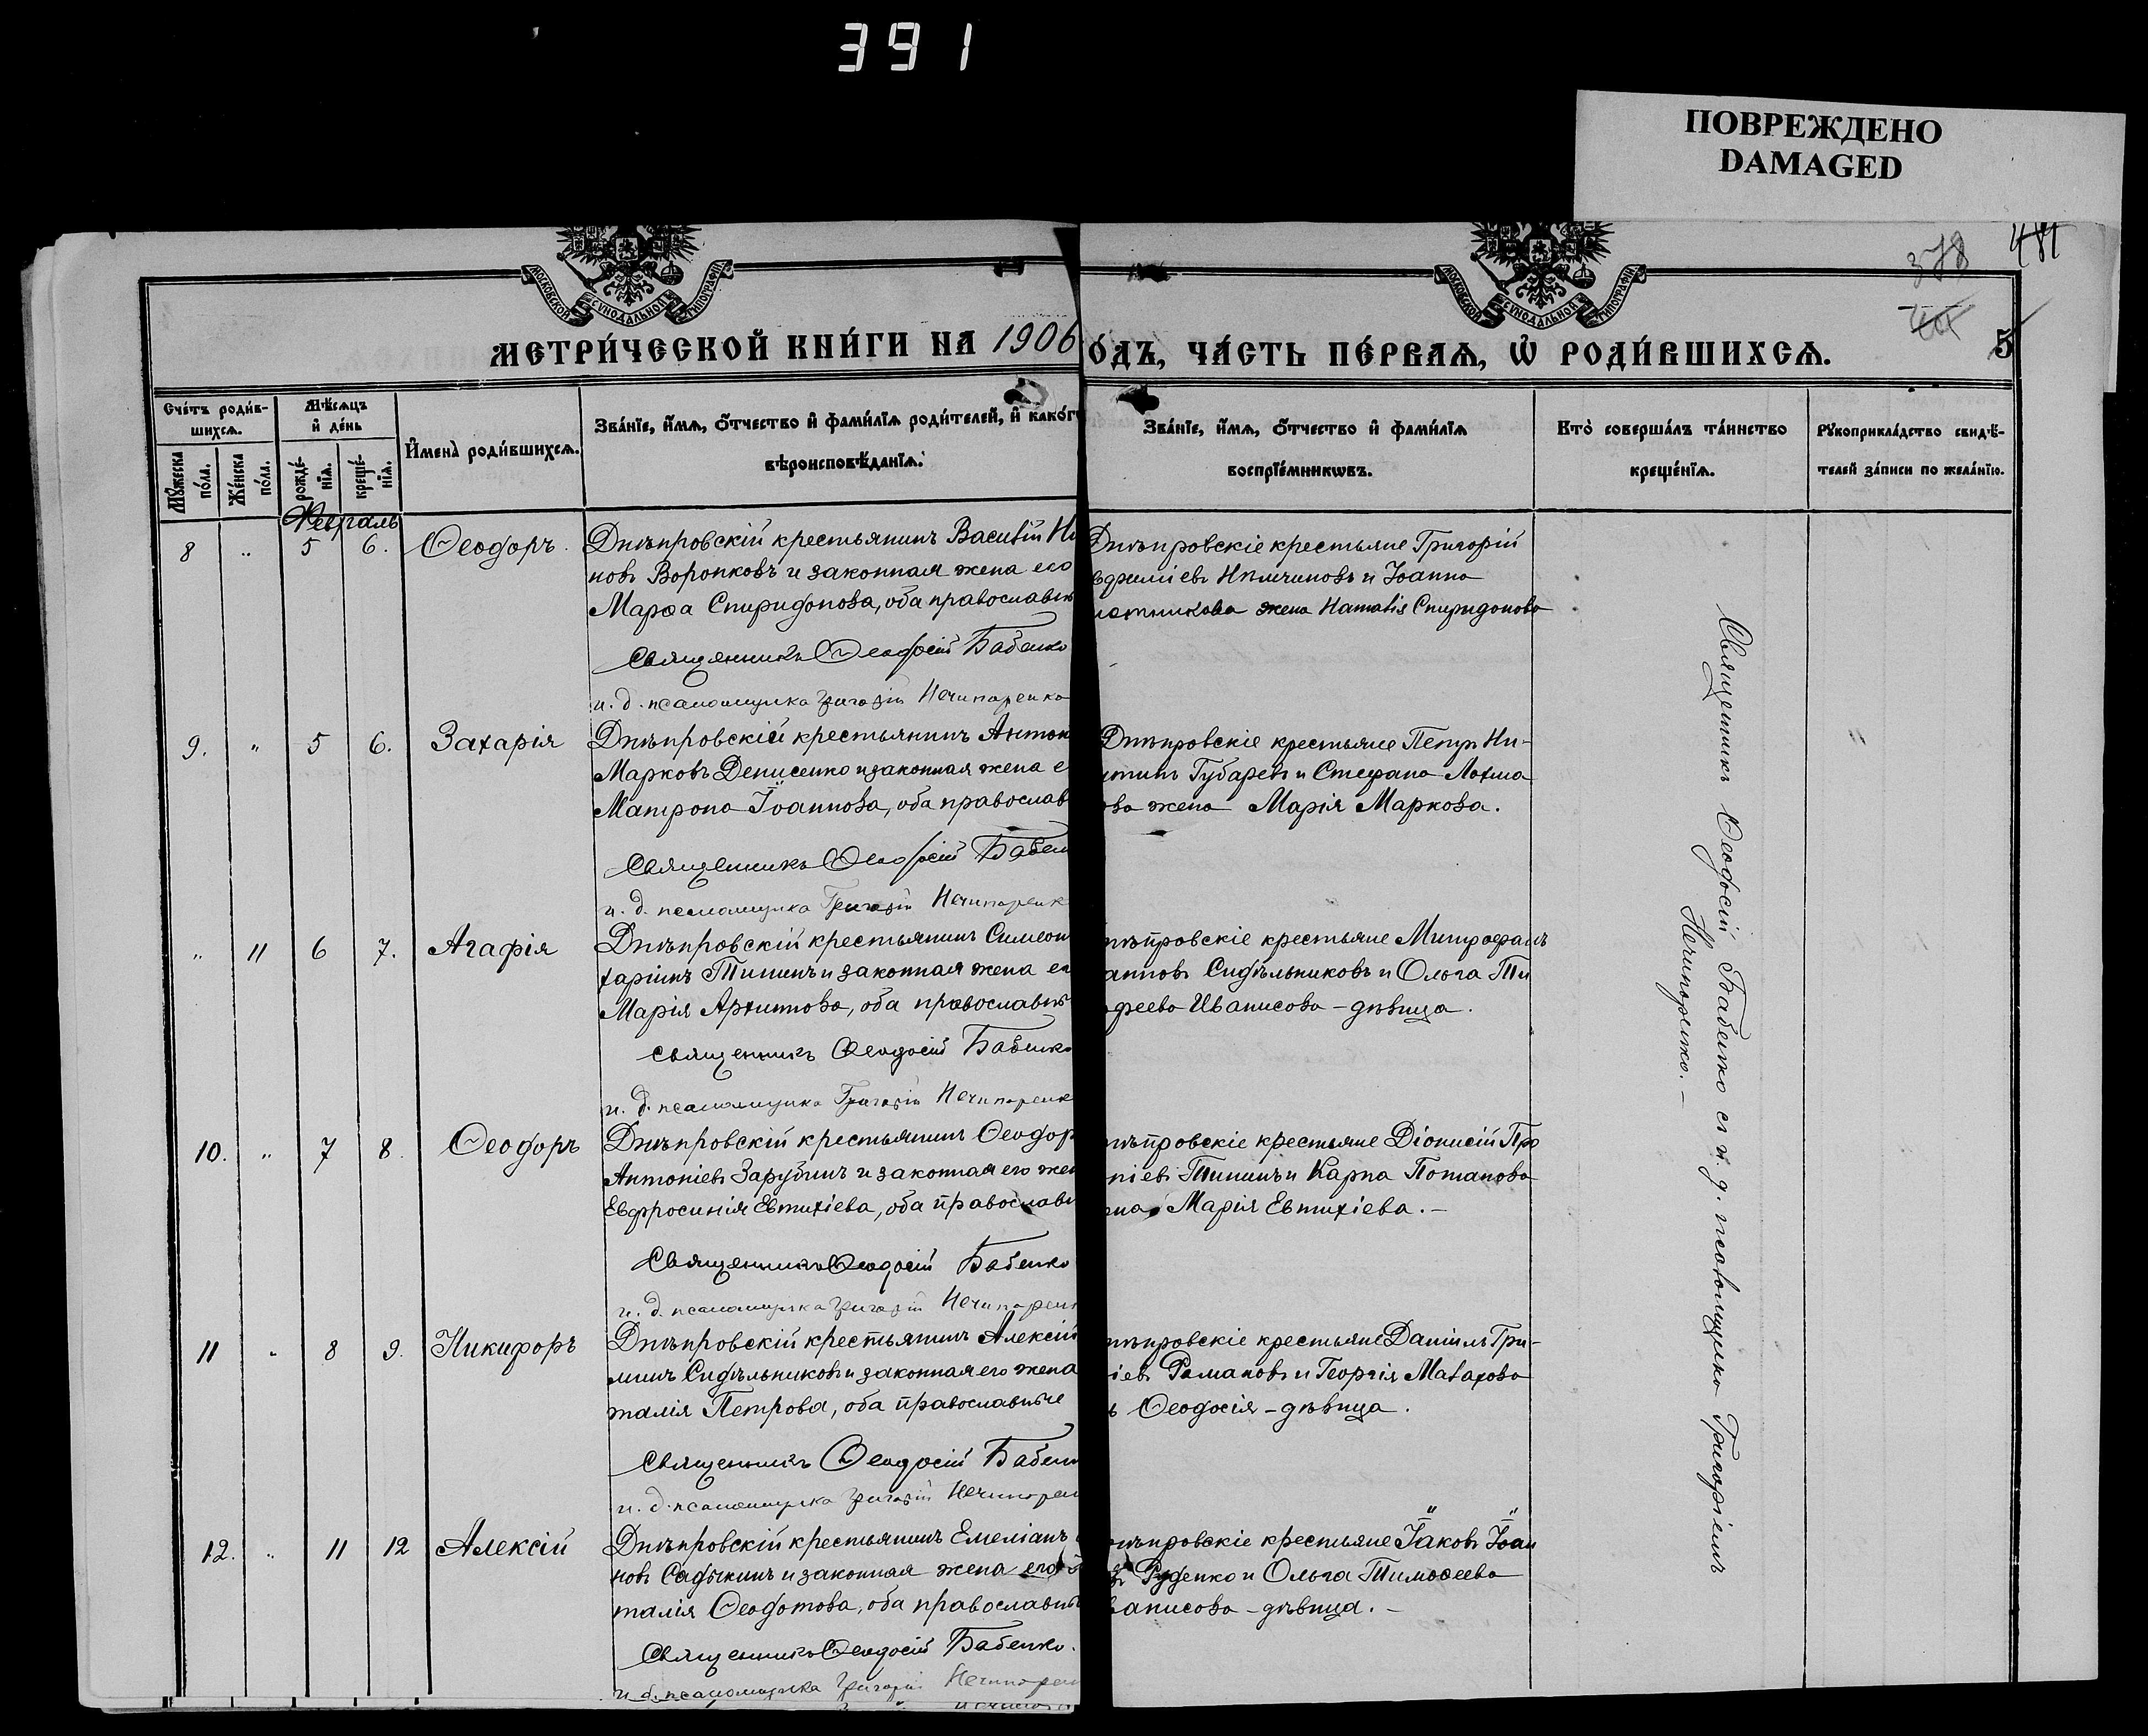 391
ПОВРЕЖДЕНО
DAMAGED
378 481
МОСКОВСКОЙ СУНОДАЛЬНОЙ ТИПОГРАФІИ
МОСКОВСКОЙ СУНОДАЛЬНОЙ ТИПОГРАФІИ
МЕТРИ́ЧЕСКОЙ КНИ́ГИ НА 1906
О́ДЪ, ЧА́СТЬ ПЕ́РВАѦ, Ѡ҆ РОДИ́ВШИХСѦ.
5
Сче́тъ роди́в-
шихсѧ.
Мꙋ́жеска по́ла.
Же́нска по́ла.
Мѣ́сѧцъ
и҆ де́нь
рожде́-
нїѧ.
креще́-
нїѧ.
И҆мена̀ роди́вшихсѧ.
Зва́нїе, и҆́мѧ, ѻ҆́тчество и҆ фами́лїѧ роди́телей, и҆ како́г
вѣроисповѣ́данїѧ.
Зва́нїе, и҆́мѧ, ѻ҆́тчество и҆ фами́лїѧ
воспрїе́мникѡвъ.
Кто̀ соверша́лъ та́инство
креще́нїѧ.
Рꙋкоприкла́дство свидѣ́-
телей за́писи по жела́нїю.
Февраль
8 " 5 6. Ѳеодоръ.
Днѣпровскій крестьянинъ Василій Ни
новъ Воронковъ и законная жена его
Марѳа Спиридонова, оба православн
Священникъ Ѳеодосій Бабенко
и. д. псаломщика Григорій Нечипоренко
Днѣпровскіе крестьяне Григорій
вфиміевъ Нѣмчиновъ и Іоанна
жена Наталія Спиридонова
9. " 5 6. Захарія
Днѣпровскій крестьянинъ Антон
Марковъ Денисенко и законная жена е
Матрона Іоаннова, оба православ
Священникъ Ѳеодосій Бабен
и. д. псаломщика Григорій Нечипоренк
Днѣпровскіе крестьяне Петръ Ни-
итинъ Губаревъ и Стефана Лахма
ова жена Марія Маркова.
" 11 6 7. Агафія
Днѣпровскій крестьянинъ Симеон
харіинъ Тишинъ и законная жена ег
Марія Архипова, оба православн
Священникъ Ѳеодосій Бабенко
и. д. псаломщика Григорій Нечипоренк
нѣпровскіе крестьяне Митрофанъ
анновъ Сидѣльниковъ и Ольга Ти
офеева Иванисова - дѣвица.
10. " 7 8. Ѳеодоръ
Днѣпровскій крестьянинъ Ѳеодор
Антоніевъ Зарубинъ и законная его жен
Евфросинія Евтихіева, оба православн
Священникъ Ѳеодосій Бабенко
и. д. псаломщика Григорій Нечипорен
нѣпровскіе крестьяне Діонисій Про
піевъ Тишинъ и Карпа Потапова
ена Марія Евтихіева. -
11 " 8 9. Никифоръ
Днѣпровскій крестьянинъ Алексій
минъ Сидѣльниковъ и законная его жена
талія Петрова, оба православные
Священникъ Ѳеодосій Бабен
и. д. псаломщика Григорій Нечипорен
нѣпровскіе крестьяне Даніилъ Гри-
іевъ Романовъ и Георгія Малахова
ь Ѳеодосія - дѣвица.
12. " 11 12 Алексій
Днѣпровскій крестьянинъ Емеліанъ
новъ Садыкинъ и законная жена его
талія Ѳеодотова, оба православны
Священникъ Ѳеодосій Бабенко.
и. д. псаломщика Григорій Нечипорен
нѣпровскіе крестьяне Іаковъ Іоан
въ Руденко и Ольга Тимоѳеева
ванисова - дѣвица. -
Священникъ Ѳеодосій Бабенко съ и. д. псаломщика Григоріемъ
Нечипоренко. -